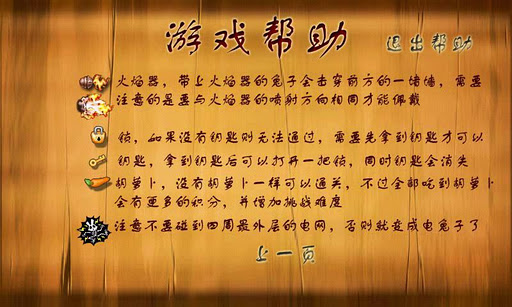 游戏帮助
退出帮助
火焰器，带上火焰器的兔子会击穿前方的一堵墙，需要
注意的是要与火焰器的喷射方向相同才能佩戴
锁，如果没有钥匙则无法通过，需要先拿到钥匙才可以
钥匙，拿到钥匙后可以打开一把锁，同时钥匙会消失
胡萝卜，没有胡萝卜一样可以通关，不过全部吃到胡萝卜
会有更多的积分，并增加挑战难度
注意不要碰到四周最外层的电网，否则就变成电兔子了
上一页